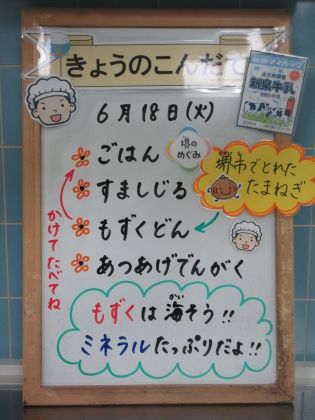 きょうのこんだて
6月18日(火)
ごはん
堺の
めぐみ
すましじる
もずくどん
あつあげでんがく
かけてたべてね
堺市でとれた
たまねぎ
もずくは海そう!!
かい
ミネラルたっぷりだよ!!
新泉牛乳